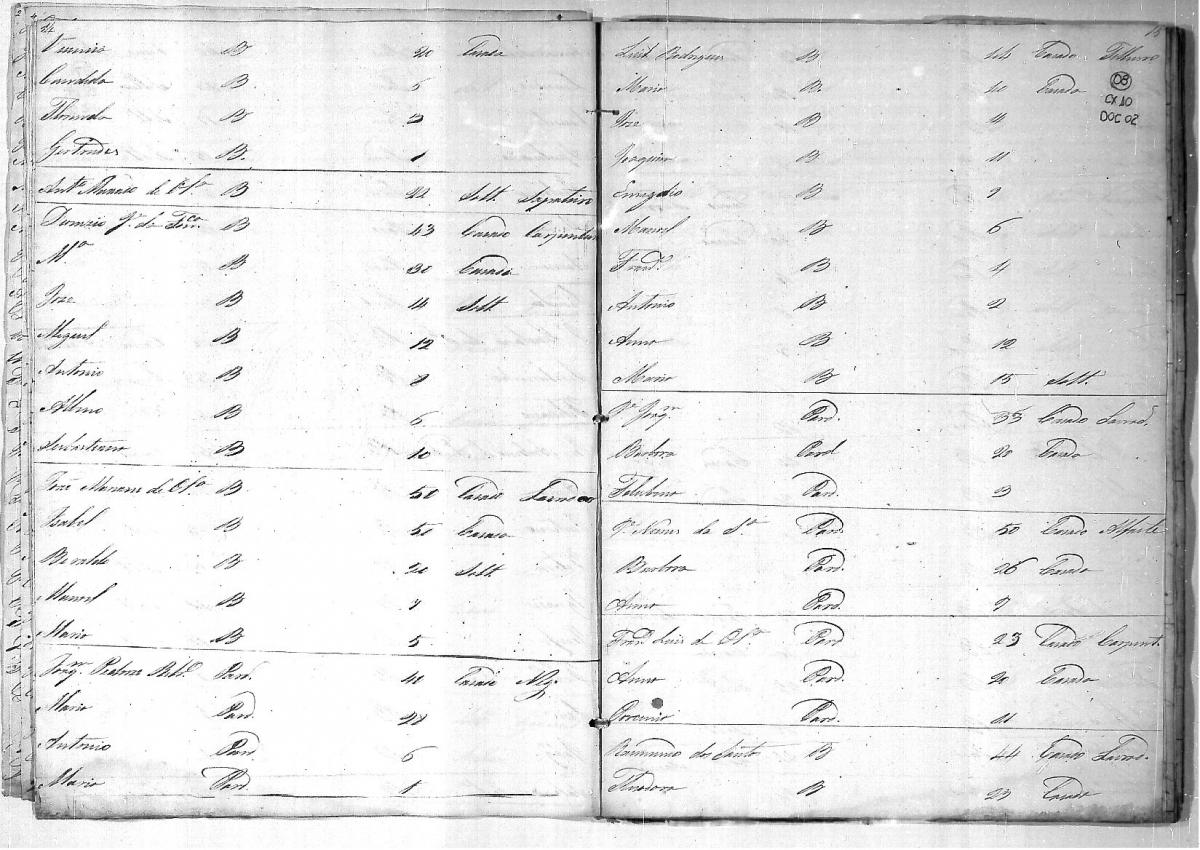 B 20 Casada
Candida B 5
Florinda B 3
Gertrudes B. 1
Antº Mariano de Olª B 22 Solt. Sapateiro
B 43 Casado Carpinteiro
Mª B 30 Casada
Joze B 14 Solt.
Miguel B 12
Antonio B 8
Albino B 6
Sebastiana B 10
Joze Mariano de Olª B 50 Casado
Isabel B 50 Casada
Beralda B 20 Solt.
Manoel B 7
Maria B 5
Joaqm Pard. 40 Casado Neg.
Maria Pard. 28
Antonio Pard. 6
Maria Pard. 1
15
08
CX 10
DOC 02
Luis Rodrigues B 44 Casado
Maria B 40 Casada
Joze B 14
Joaquim B 11
Emygdio B 9
Manoel B 6
Frandº B 4
Antonio B 2
Anna B 12
Maria B 15 Solt.
Jº Joaqm Pard. 35 Casado Lavrad.
Barbora Pard. 20 Casada
Felisbina Pard. 3
Jº Nunes da Sª Pard. 50 Casado Alfaite
Barbora Pard. 26 Casada
Anna Pard. 9
Franº Luis de Olª Pard. 23 Casado Carpint.
Anna Pard. 20 Casada
Pard. 11
Raimundo dos Santos B 44 Casado Lavrad.
Theodora B 23 Casada